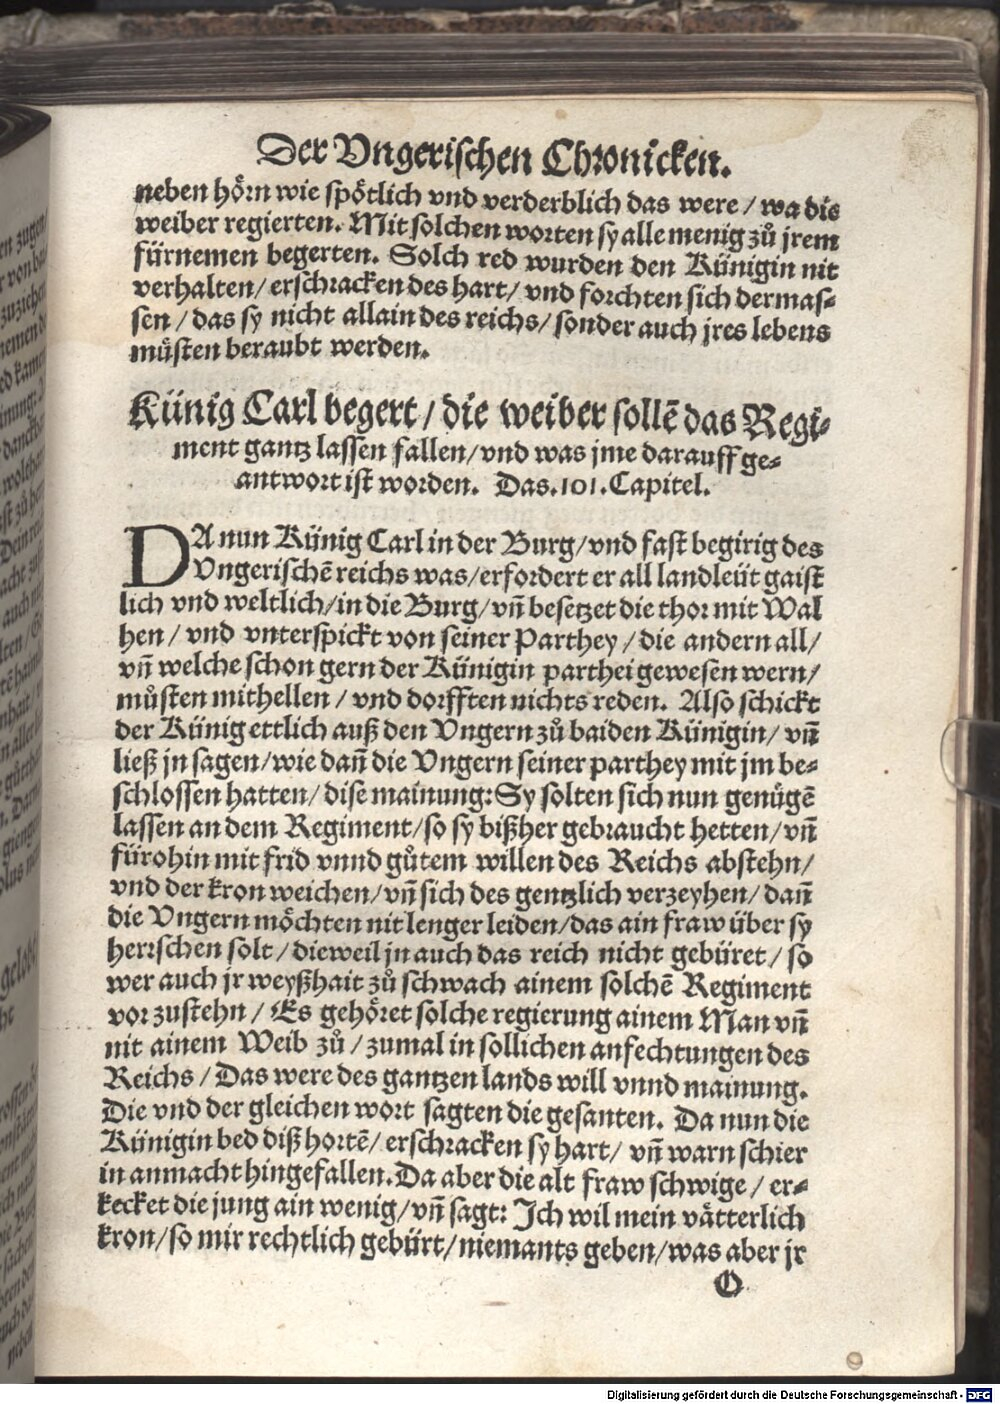 Der Vngerischen Chronicken.
neben hörn wie spötlich vnd verderblich das were / wa die
weiber regierten. Mit solchen worten sy alle menig zů jrem
fürnemen begerten. Solch red wurden den Künigin nit
verhalten / erschracken des hart / vnd forchten sich dermas-
sen / das sy nicht allain des reichs / sonder auch jres lebens
můsten beraubt werden.
Künig Carl begert / die weiber sollẽ das Regi-
ment gantz lassen fallen / vnd was jme darauff ge-
antwort ist worden. Das .101. Capitel.
DA nun Künig Carl in der Burg / vnd fast begirig des
Vngerischẽ reichs was / erfordert er all landleüt gaist
lich vnd weltlich / in die Burg / vñ besetzet die thor mit Wal
hen / vnd vnterspickt von seiner Parthey / die andern all /
vñ welche schon gern der Künigin parthei gewesen wern /
můsten mithellen / vnd dorfften nichts reden. Also schickt
der Künig ettlich auß den Vngern zů baiden Künigin / vñ
ließ jn sagen / wie dañ die Vngern seiner parthey mit jm be-
schlossen hatten / dise mainung: Sy solten sich nun genügẽ
lassen an dem Regiment / so sy bißher gebraucht hetten / vñ
fürohin mit frid vnnd gůtem willen des Reichs abstehn /
vnd der kron weichen / vñ sich des gentzlich verzeyhen / dañ
die Vngern möchten nit lenger leiden / das ain fraw über sy
herrschen solt / dieweil jn auch das reich nicht gebüret / so
wer auch jr weyßhait zů schwach ainem solchẽ Regiment
vor zustehn / Es gehöret solche regierung ainem Man vñ
nit ainem Weib zů / zumal in sollichen anfechtungen des
Reichs / Das were des gantzen lands will vnnd mainung.
Die vnd der gleichen wort sagten die gesanten. Da nun die
Künigin bed diß hortẽ / erschracken sy hart / vñ warn schier
in anmacht hingefallen. Da aber die alt fraw schwige / er-
kecket die jung ain wenig / vñ sagt: Ich wil mein vätterlich
kron / so mir rechtlich gebürt / niemants geben / was aber jr
O
Digitalisierung gefördert durch die Deutsche Forschungsgemeinschaft - DFG